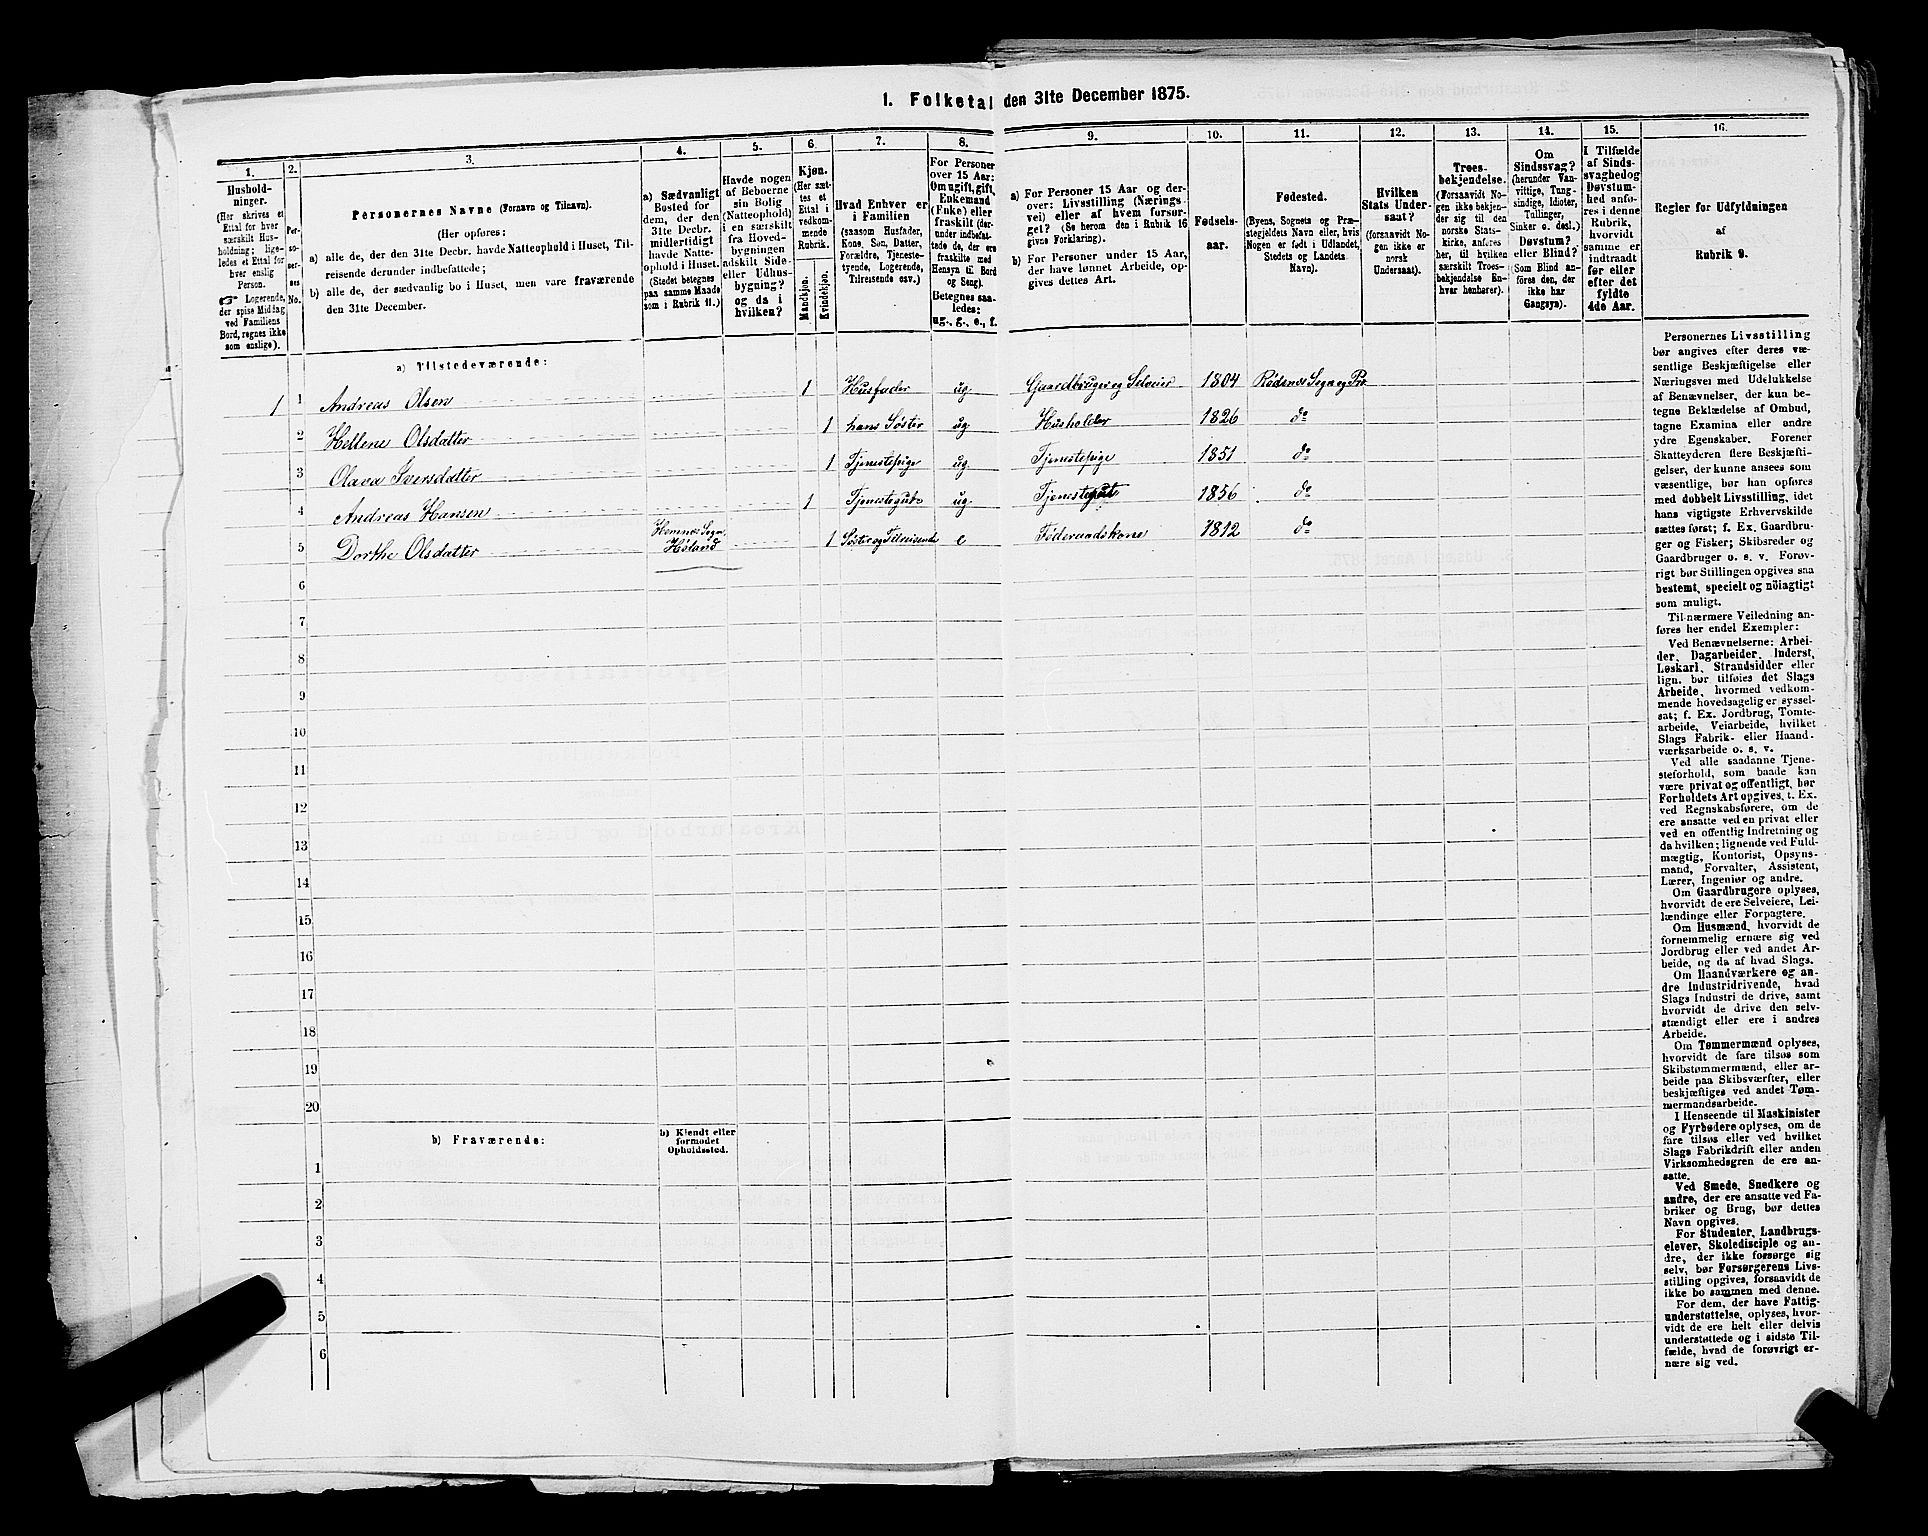 1. Folketal den 31te December 1875.
1.
Hushold-
ninger.
(Her skrives et
Ettal for hver
særskilt Hus-
holdning; lige-
ledes et Ettal for
hver enslig
Person.
☞ Logerende,
der spise Middag
ved Familiens
Bord, regnes ikke
som enslige).
2.
Per-
so-
ner-
nes
No.
3.
Personernes Navne (Fornavn og Tilnavn).
(Her opføres:
a) alle de, der den 31te Decbr. havde Natteophold i Huset, Til-
reisende derunder indbefattede;
b) alle de, der sædvanlig bo i Huset, men vare fraværende
den 31te December.
4.
a) Sædvanligt
Bosted for
dem, der den
31te Decbr.
midlertidigt
havde Natte-
ophold i Huset.
(Stedet betegnes
paa samme Maade
som i Rubrik 11.)
5.
Havde nogen
af Beboerne
sin Bolig
(Natteophold)
i en særskilt
fra Hoved-
bygningen
adskilt Side-
eller Udhus-
bygning?
og da i
hvilken?
6.
Kjøn.
(Her sæt-
tes et
Ettal i
vedkom-
mende
Rubrik.
Mandkjøn.
Kvindekjøn.
7.
Hvad Enhver er
i Familien
(saasom Husfader,
Kone, Søn, Datter,
Forældre, Tjeneste-
tyende, Logerende,
Tilreisende osv.)
8.
For Personer
over 15 Aar:
Om ugift, gift,
Enkemand
(Enke) eller
fraskilt (der-
under indbefat-
tede de, der ere
fraskilte med
Hensyn til Bord
og Seng).
Betegnes saa-
ledes:
ug., g., e., f.
9.
a) For Personer 15 Aar og der-
over: Livsstilling (Nærings-
vei) eller af hvem forsør-
get? (Se herom den i Rubrik 16
givne Forklaring).
b) For Personer under 15 Aar,
der have lønnet Arbeide, op-
gives dettes Art.
10.
Fødsels-
aar.
11.
Fødested.
(Byens, Sognets og Præ-
stegjeldets Navn eller, hvis
Nogen er født i Udlandet,
Stedets og Landets
Navn).
12.
Hvilken
Stats Under-
saat?
(forsaavidt No-
gen ikke er
norsk
Undersaat).
13.
Troes-
bekjendelse.
(Forsaavidt No-
gen ikke bekjen-
der sig til den
norske Stats-
kirke, anføres
her, til hvilken
særskilt Troes-
bekjendelse En-
hver henhører).
14.
Om
Sindssvag?
(herunder Van-
vittige, Tung-
sindige, Idioter,
Tullinger,
Sinker o. desl.)
Døvstum?
eller Blind?
(Som Blind an-
føres den, der
ikke har
Gangsyn).
15.
I Tilfælde
af Sinds-
svaghed og
Døvstum-
hed anfø-
res i denne
Rubrik,
hvorvidt
samme er
indtraadt
før eller
efter det
fyldte
4de Aar.
16.
Regler for Udfyldningen
af
Rubrik 9.
a) Tilstedeværende:
1 1 Andreas Olsen 1 Husfader ug. Gaardbruger og Selveier 1804 Rødenæs Sogn og Pr.
2 Hellene Olsdatter 1 hans Søster ug. Husholder 1826 do
3 Olava Iversdatter 1 Tjenestepige ug. Tjenestepige 1851 do
4 Andreas Hansen 1 Tjenestegut ug. Tjenestegut 1856 do
5 Dorthe Olsdatter Hemnæs Sogn, Høland 1 Søster og Tilreisende e Føderaadskone 1812 do
6
7
8
9
10
11
12
13
14
15
16
17
18
19
20
b) Fraværende:
b) Kjendt eller
formodet
Opholdssted.
1
2
3
4
5
6
Personernes Livsstilling
bør angives efter deres væ-
sentlige Beskjæftigelse eller
Næringsvei med Udelukkelse
af Benævnelser, der kun be-
tegne Beklædelse af Ombud,
tagne Examina eller andre
ydre Egenskaber. Forener
Skatteyderen flere Beskjæfti-
gelser, der kunne ansees som
væsentlige, bør han opføres
med dobbelt Livsstilling, idet
hans vigtigste Erhvervskilde
sættes først; f. Ex. Gaardbru-
ger og Fisker; Skibsreder og
Gaardbruger o. s. v. Forøv-
rigt bør Stillingen opgives saa
bestemt, specielt og nöiagtigt
som muligt.
Til nærmere Veiledning an-
føres her endel Exempler:
Ved Benævnelserne: Arbei-
der, Dagarbeider, Inderst,
Løskarl, Strandsidder eller
lign. bør tilføies det Slags
Arbeide, hvormed vedkom-
mende hovedsagelig er syssel-
sat; f. Ex. Jordbrug, Tomte-
arbeide, Veiarbeide, hvilket
Slags Fabrik- eller Haand-
værksarbeide o. s. v.
Ved alle saadanne Tjene-
steforhold, som baade kan
være privat og offentligt, bør
Forholdets Art opgives, t. Ex.
ved Regnskabsførere, om de
ere ansatte ved en privat eller
ved en offentlig Indretning og
da hvilken; lignende ved Fuld-
mægtig, Kontorist, Opsyns-
mand, Forvalter, Assistent,
Lærer, Ingeniør og andre.
Om Gaardbrugere oplyses,
hvorvidt de ere Selveiere, Lei-
lændinge eller Forpagtere.
Om Husmænd, hvorvidt de
fornemmelig ernære sig ved
Jordbrug eller ved andet Ar-
beide, og da af hvad Slags.
Om Haandværkere og an-
dre Industridrivende, hvad
Slags Industri de drive, samt
hvorvidt de drive den selv-
stændigt eller ere i andres
Arbeide.
Om Tømmermænd oplyses,
hvorvidt de fare tilsøs som
Skibstømmermænd, eller ar-
beide paa Skibsværfter, eller
beskjæftiges ved andet Tøm-
mermandsarbeide.
I Henseende til Maskinister
og Fyrbødere oplyses, om de
fare tilsøs eller ved hvilket
Slags Fabrikdrift eller anden
Virksomhedsgren de ere an-
satte.
Ved Smede, Snedkere og
andre, der ere ansatte ved Fa-
briker og Brug, bør dettes
Navn opgives.
For Studenter, Landbrugs-
elever, Skoledisciple og an-
dre, der ikke forsørge sig
selv, bør Forsørgerens Livs-
stilling opgives, forsaavidt de
ikke bo sammen med denne.
For dem, der have Fattig-
understøttelse, oplyses, hvor-
vidt de ere helt eller delvis
understøttede og i sidste Til-
fælde, hvad de forøvrigt er-
nære sig ved.